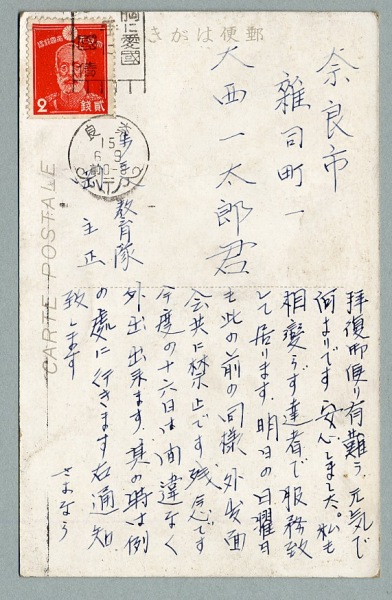 郵便はがき
胸に愛國
國債
貳錢
2
奈良
15
6
9
CARTE POSTALE
奈良市
雜司町一
大西一太郎君
教育隊
主正
拝復御便り有難う元気で
何よりです安心しました。私も
相変らず達者で服務致
して居ります。明日の日曜日
も此の前の同様外出面
会共に禁止です残念です
今度の十六日は間違なく
外出出来ます。其の時は例
の處に行きます右通知
致します
さよなら